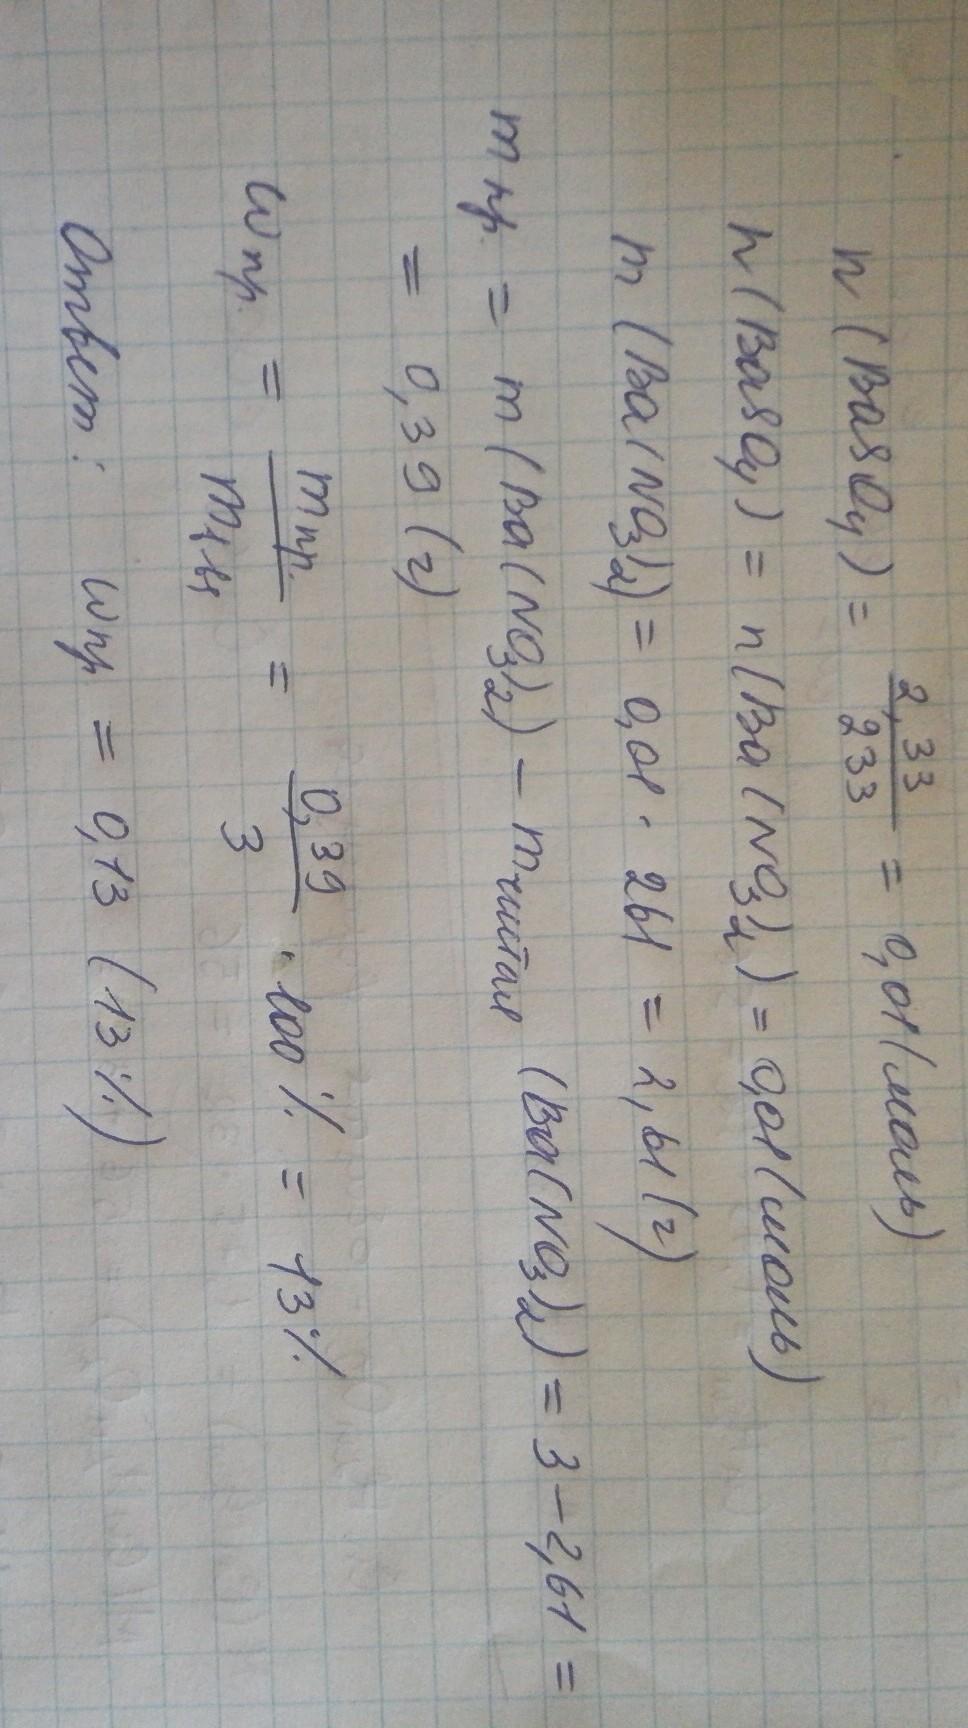 n (BaSO₄) = 2,33/233 = 0,01 (моль)
n (BaSO₄) = n (Ba(NO₃)₂) = 0,01 (моль)
m (Ba(NO₃)₂) = 0,01 · 261 = 2,61 (г)
m пр. = m (Ba(NO₃)₂) – m чистая (Ba(NO₃)₂) = 3 – 2,61 =
= 0,39 (г)
ω пр. = m пр./m = 0,39/3 · 100 % = 13 %
Ответ: ω пр = 0,13 (13 %)